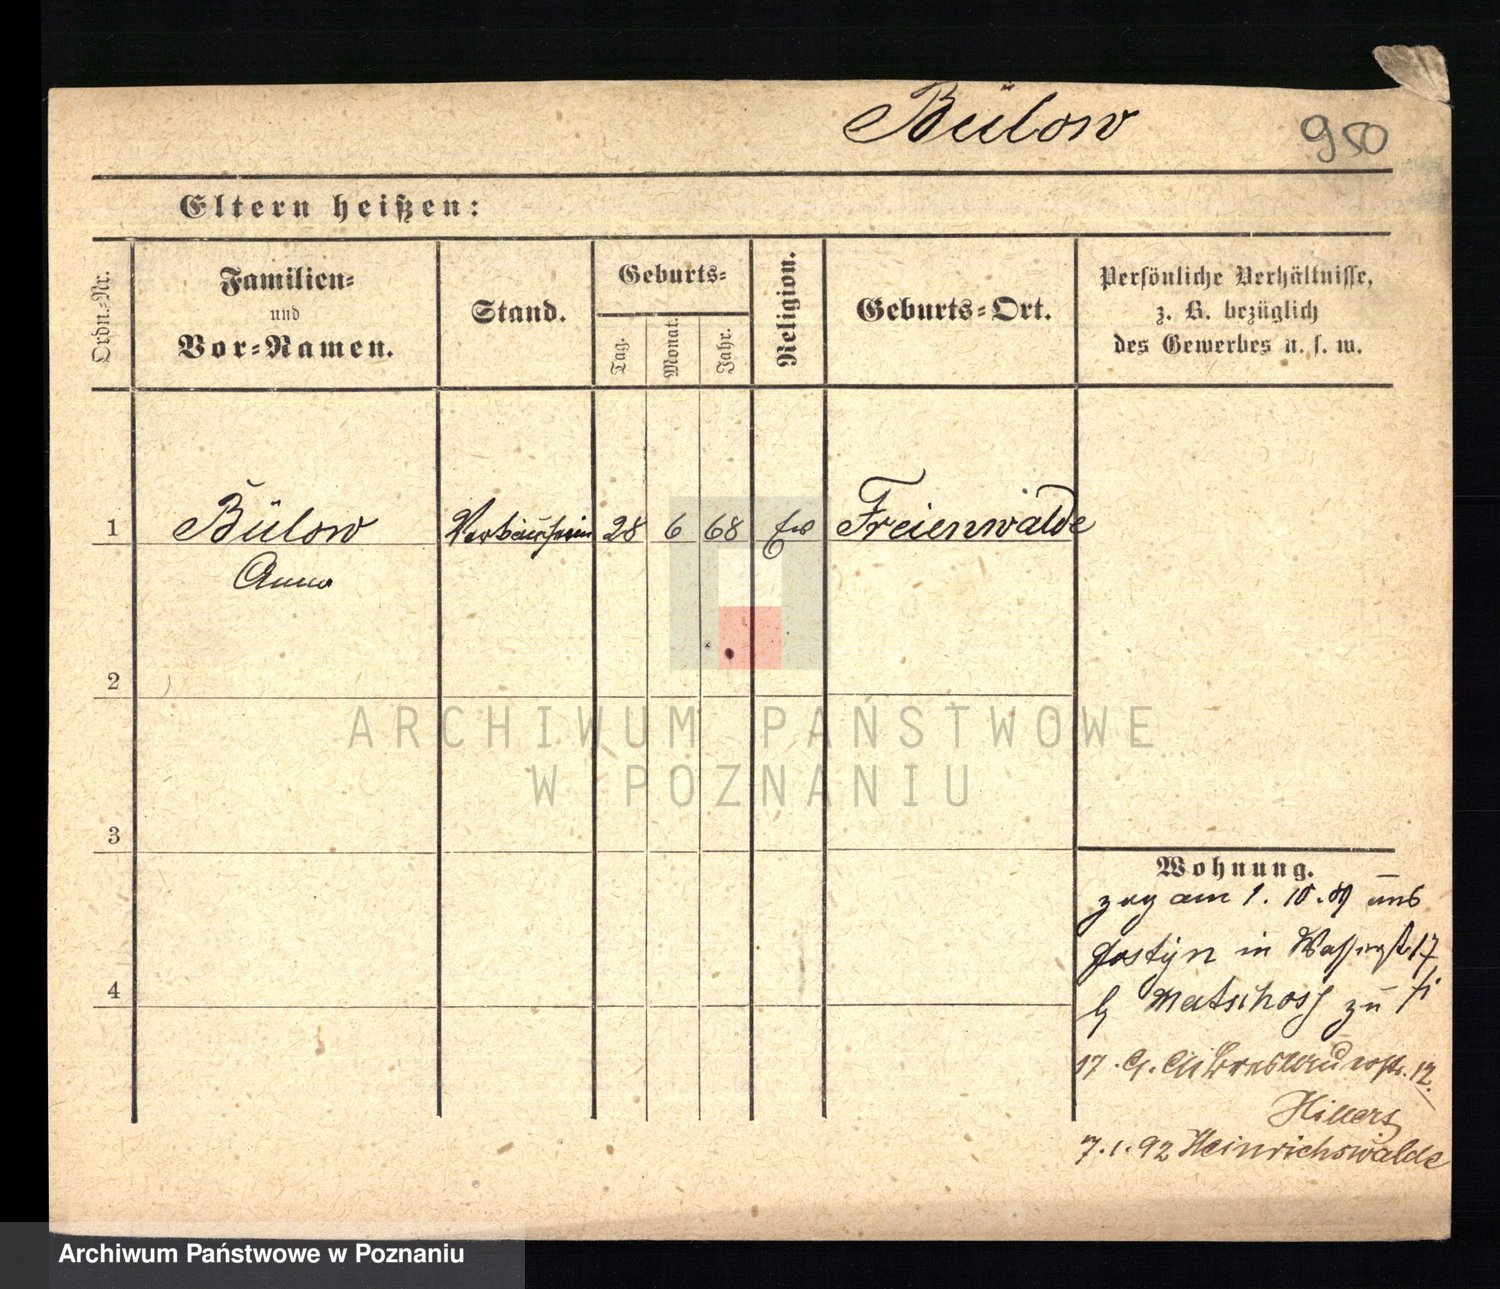 Bülow
950
Eltern heißen:
Ordn.-Nr.
Familien-
und
Vor-Namen.
Stand.
Geburts-
Tag.
Monat.
Jahr.
Religion.
Geburts-Ort.
Persönliche Verhältnisse,
z. B. bezüglich
des Gewerbes u. s. w.
1
Bülow
Anna
Verkäuferin
28
6
68
Ev
Freienwalde
2
3
4
Wohnung.
zug am 1. 10. 89 aus
Gostyn in Wasserstr 17
b
zu
17.
12.
Hillers
7.1.92 Heinrichswalde
ARCHIWUM PAŃSTWOWE
W POZNANIU
Archiwum Państwowe w Poznaniu